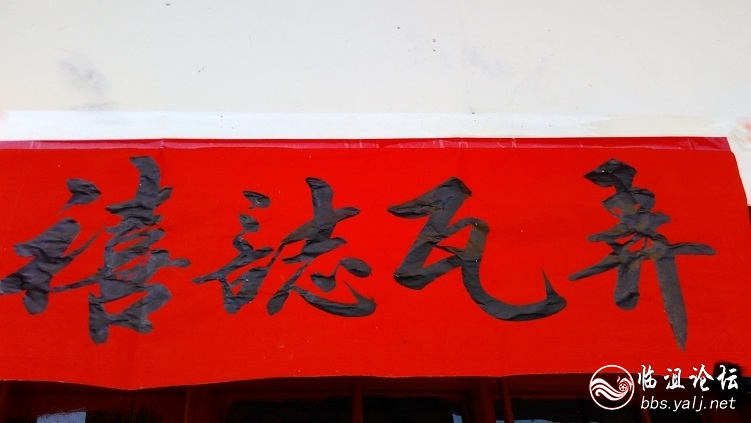 弄瓦誌禧
临沮论坛
bbs.yalj.net